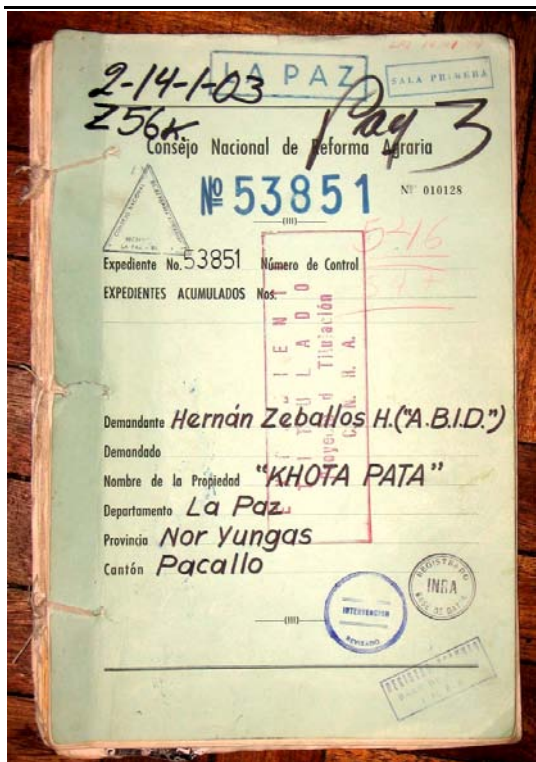 LA PAZ
SALA PRIMERA
2-14-1-03
Z56K
Pay 3
Consejo Nacional de Reforma Agraria
Nº 53851
Nº 010128
(III)
5216
Expediente No. 53851 Número de Control
EXPEDIENTES ACUMULADOS Nos.
EXPEDIENTE
TITULADO
Proyecto d Titulación
C. N. R. A.
Demandante Hernán Zeballos H. ("A.B.I.D.")
Demandado
Nombre de la Propiedad "KHOTA PATA"
Departamento La Paz
Provincia Nor Yungas
Cantón Pacallo
REGISTRADO
INRA
INTERVENCION
REVISADO
(III)